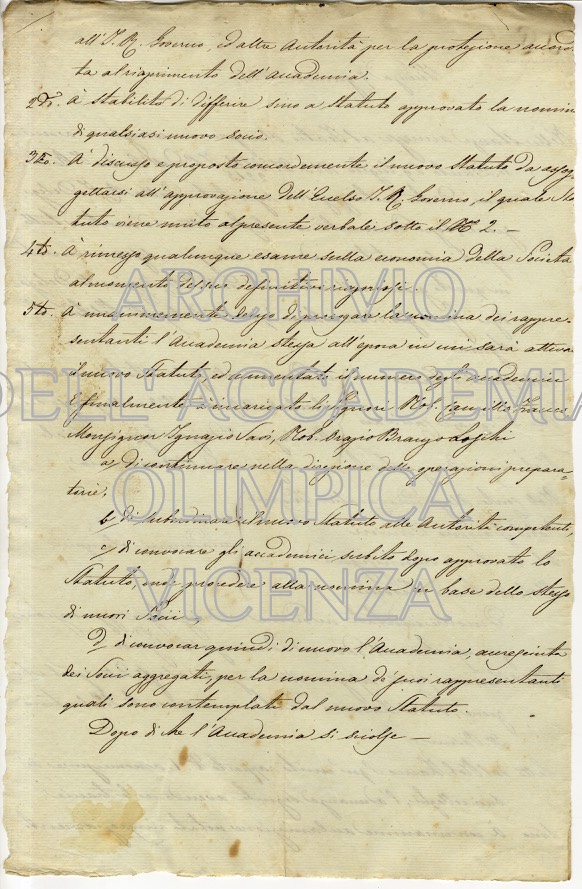 all'I. R. Governo, ed altre Autorità per la protezione accorda-
ta al riaprimento dell'Accademia.
2do. À stabilito di differire sino a Statuto approvato la nomina
di qualsiasi nuovo Socio.
3zo. À discusso e proposto concordemente il nuovo Statuto da assog-
gettarsi all'approvazione dell'Eccelso I. R. Governo, il quale Sta-
tuto viene unito al presente verbale sotto il N.º 2. —
4to. À rimesso qualunque esame sulla economia della Società
al momento del suo definitivo
5to. À unanimemente di prorogare la nomina dei rappre-
sentanti l'Accademia stessa all'epoca in cui sarà attivato
il nuovo Statuto, ed aumentato il numero degli accademici
E finalmente à incaricato li Signori Nob.
Monsignor Ignazio Savi, Nob. Orazio Braga Loschi
a) di continuare nella direzione delle operazioni prepara-
torie,
b) di subordinare il nuovo Statuto alle Autorità competenti,
c) di convocare gli accademici subito dopo approvato lo
Statuto, onde procedere alla nomina in base dello stesso
di nuovi Socii,
d) di convocar quindi di nuovo l'Accademia, accresciuta
dei Socii aggregati, per la nomina de' suoi rappresentanti
quali sono contemplati dal nuovo Statuto.
Dopo di che l'Accademia si sciolse —
ARCHIVIO
DELL'ACCADEMIA
OLIMPICA
VICENZA